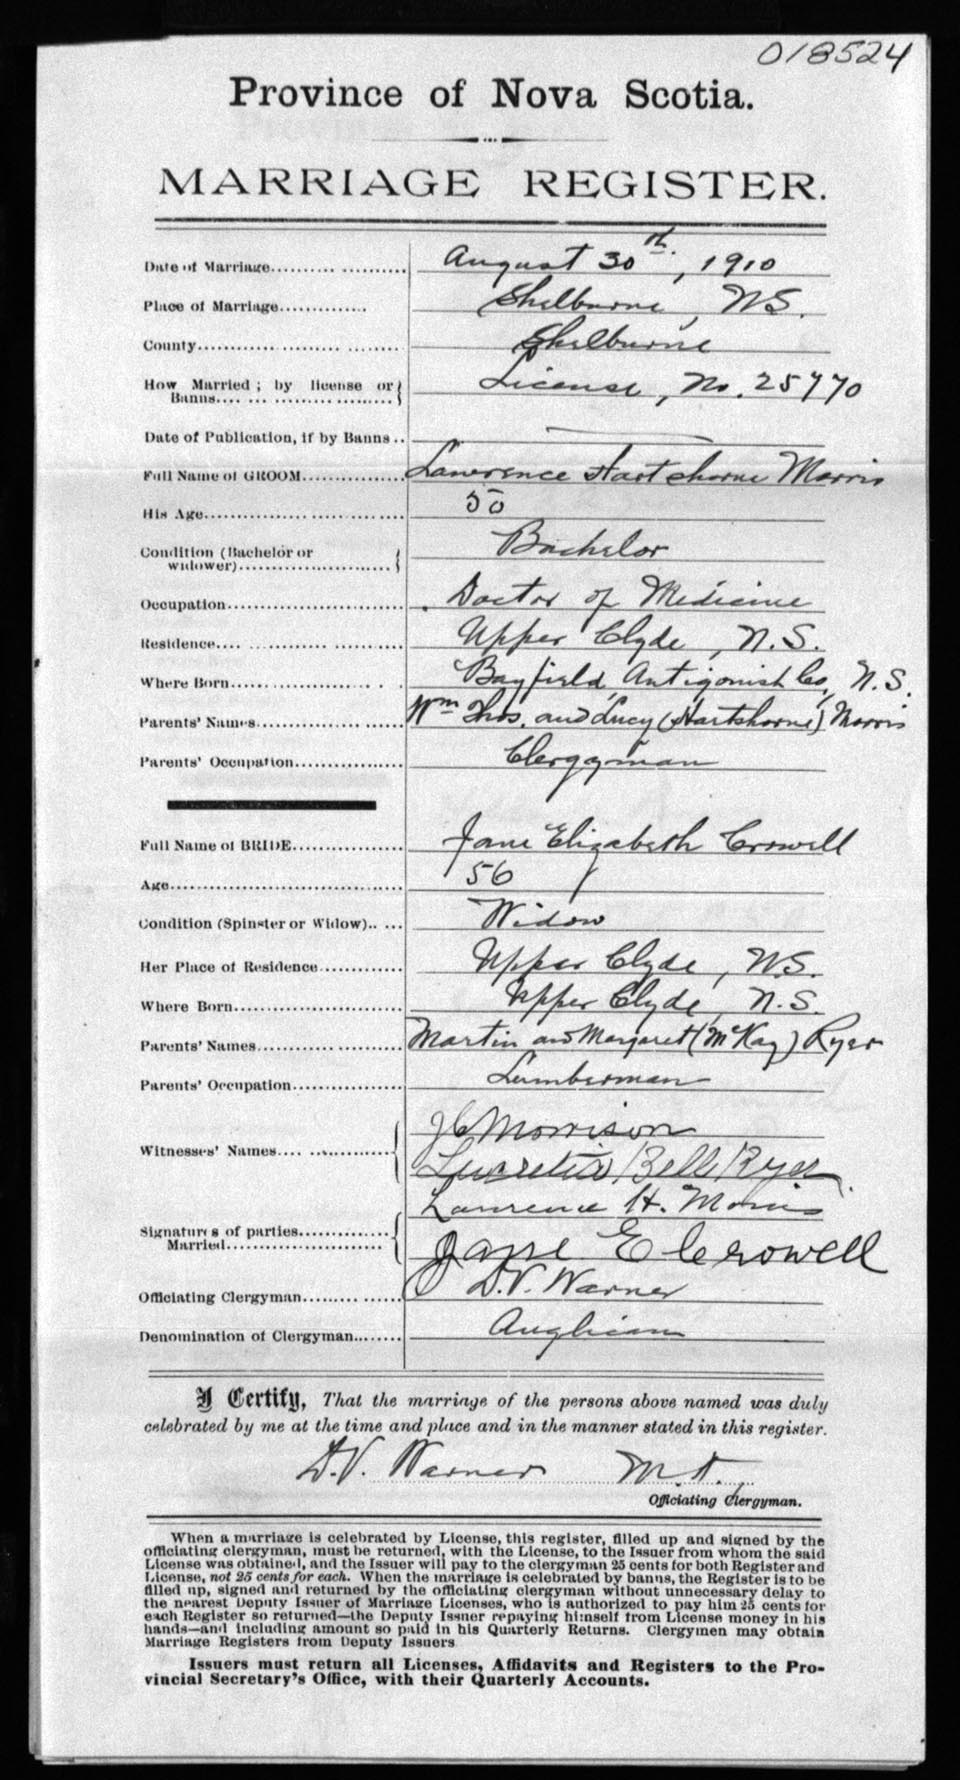 018524
Province of Nova Scotia.
MARRIAGE REGISTER.
Date of Marriage.......... August 30th, 1910
Place of Marriage............. Shelburne, N.S.
County........................ Shelburne
How Married; by license or Banns........................ License, No. 25770
Date of Publication, if by Banns.. —
Full Name of GROOM................ Lawrence Hartshorne Morris
His Age........................ 50
Condition (Bachelor or widower)........................ Bachelor
Occupation........................ Doctor of Medicine
Residence........................ Upper Clyde, N.S.
Where Born........................ Bayfield, Antigonish Co., N.S.
Parents' Names........................ Wm Thos. and Lucy (Hartshorne) Morris
Parents' Occupation................ Clergyman
Full Name of BRIDE................ Jane Elizabeth Crowell
Age........................ 56
Condition (Spinster or Widow)..... Widow
Her Place of Residence............. Upper Clyde, N.S.
Where Born........................ Upper Clyde, N.S.
Parents' Names........................ Martin and Margaret (McKay) Ryer
Parents' Occupation................ Lumberman
Witnesses' Names................ J C Morrison
Lucretia Bell Ryer
Signatures of parties Married........................ Lawrence H. Morris
Jane E Crowell
Officiating Clergyman................ D.V. Warner
Denomination of Clergyman........ Anglican
I Certify, That the marriage of the persons above named was duly
celebrated by me at the time and place and in the manner stated in this register.
D.V. Warner M.A.
Officiating Clergyman.
When a marriage is celebrated by License, this register, filled up and signed by the
officiating clergyman, must be returned, with the License, to the Issuer from whom the said
License was obtained, and the Issuer will pay to the clergyman 25 cents for both Register and
License, not 25 cents for each. When the marriage is celebrated by banns, the Register is to be
filled up, signed and returned by the officiating clergyman without unnecessary delay to
the nearest Deputy Issuer of Marriage Licenses, who is authorized to pay him 25 cents for
each Register so returned—the Deputy Issuer repaying himself from License money in his
hands—and including amount so paid in his Quarterly Returns. Clergymen may obtain
Marriage Registers from Deputy Issuers
Issuers must return all Licenses, Affidavits and Registers to the Pro-
vincial Secretary's Office, with their Quarterly Accounts.